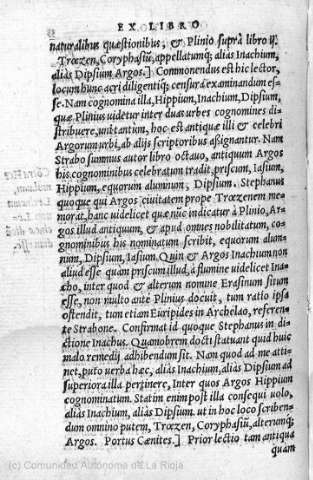 EX LIBRO
naturalibus quæstionibus, & Plinio suprà libro ij.
Trœzen, Coryphasiũ, appellatumq; aliàs Inachum,
aliàs Dipsium Argos.] Commonendus est hic lector,
locum hunc acri diligentiq; censura examinandum es-
se. Nam cognomina illa, Hippium, Inachium, Dipsium,
quæ Plinius uidetur inter duas urbes cognomines di-
stribuere, uni tantum, hoc est antiquæ illi & celebri
Argorum urbi, ab alijs scriptoribus aßignantur. Nam
Strabo summus autor libro octauo, antiquum Argos
his cognominibus celebratum tradit, priscum, Iasium,
Hippium, equorum alumnum, Dipsium. Stephanus
quoque qui Argos ciuitatem prope Trœzenem me-
morat, hanc uidelicet quæ nũc indicatur à Plinio, Ar-
gos illud antiquum, & apud omnes nobilitatum, co-
gnominibus his nominatum scribit, equorum alum-
num, Dipsium, Iasium. Quin & Argos Inachium non
aliud esse quàm priscum illud, à flumine uidelicet Ina-
cho, inter quod & alterum nomine Erasinum situm
esse, non multo ante Plinius docuit, tum ratio ipsa
ostendit, tum etiam Euripides in Archelao, referen-
te Strabone. Confirmat id quoque Stephanus in di-
ctione Inachus. Quamobrem docti statuant quid huic
malo remedij adhibendum sit. Nam quod ad me atti-
net, puto uerba hæc, aliàs Inachium, aliàs Dipsium ad
superiora illa pertinere, Inter quos Argos Hippium
cognominatum. Statim enim post illa consequi uolo,
aliàs Inachium, aliàs Dipsium. ut in hoc loco scriben-
dum omnino putem, Trœzen, Coryphasiũ, alterumq;
Argos. Portus Cœnites.] Prior lectio tam antiqua
quam
(c) Comunidad Autónoma de La Rioja